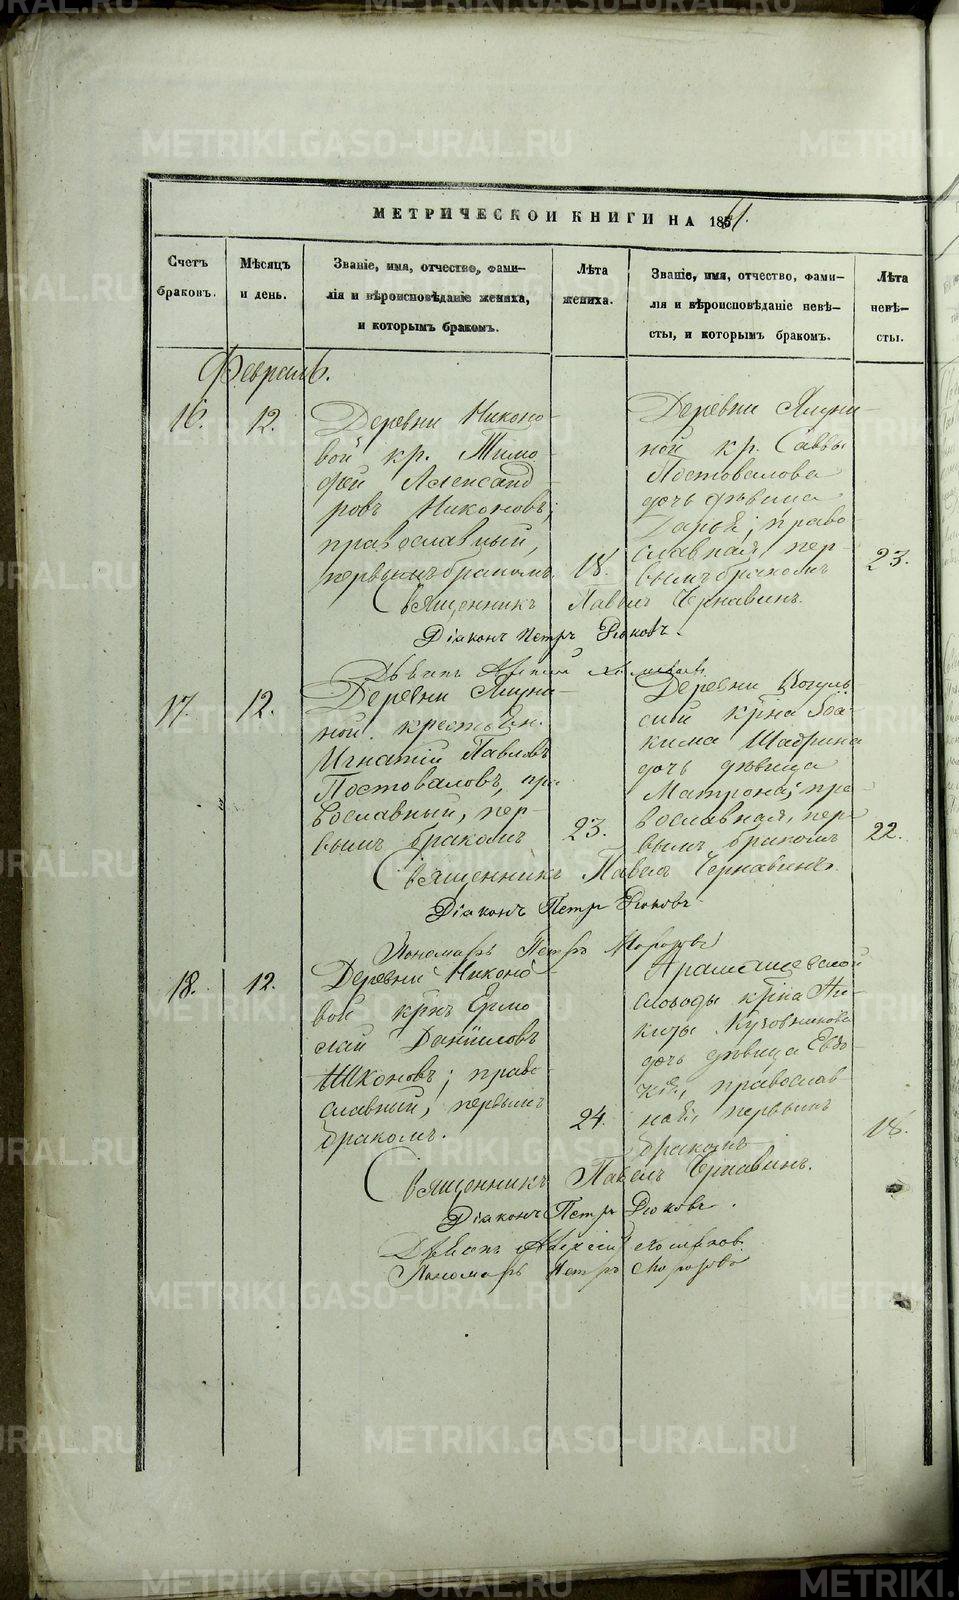 МЕТРИЧЕСКОЙ КНИГИ НА 1861.
Счетъ
браковъ.
Мѣсяцъ
и день.
Званіе, имя, отчество, фами-
лія и вѣроисповѣданіе жениха,
и которымъ бракомъ.
Лѣта
жениха.
Званіе, имя, отчество, фами-
лія и вѣроисповѣданіе невѣ-
сты, и которымъ бракомъ.
Лѣта
невѣ-
сты.
Февраль.
16.
12.
Деревни Никоно-
вой кр. Тимо-
фей Александ-
ровъ Никоновъ;
православный,
первымъ бракомъ.
18.
Деревни Ялуни-
ной кр. Саввы
Постовалова
дочь дѣвица
Дарья; право-
славная, пер-
вымъ бракомъ
23.
Священникъ Павелъ Чернавинъ.
Діаконъ Петръ Рюковъ.
17.
12.
Деревни Ялуни-
ной крестьян.
Игнатій Павловъ
Постоваловъ, пра-
вославный, пер-
вымъ бракомъ
23.
Деревни Вогуль-
ской крна Іоа-
кима Шабрина
дочь дѣвица
Матрона; пра-
вославная, пер-
вымъ бракомъ
22.
Священникъ Павелъ Чернавинъ.
Діаконъ Петръ Рюковъ
Пономарь Петръ Морозовъ
18.
12.
Деревни Никоно-
вой крнъ Ермо-
лай Даніиловъ
Никоновъ; право-
славный, первымъ
бракомъ.
24.
Арамашевской
слободы крна Ни-
киты Кузовникова
дочь дѣвица Евдо-
кія, православ-
ная, первымъ
бракомъ
18.
Священникъ Павелъ Чернавинъ.
Діаконъ Петръ Рюковъ.
Пономарь Петръ Морозовъ
METRIKI.GASO-URAL.RU